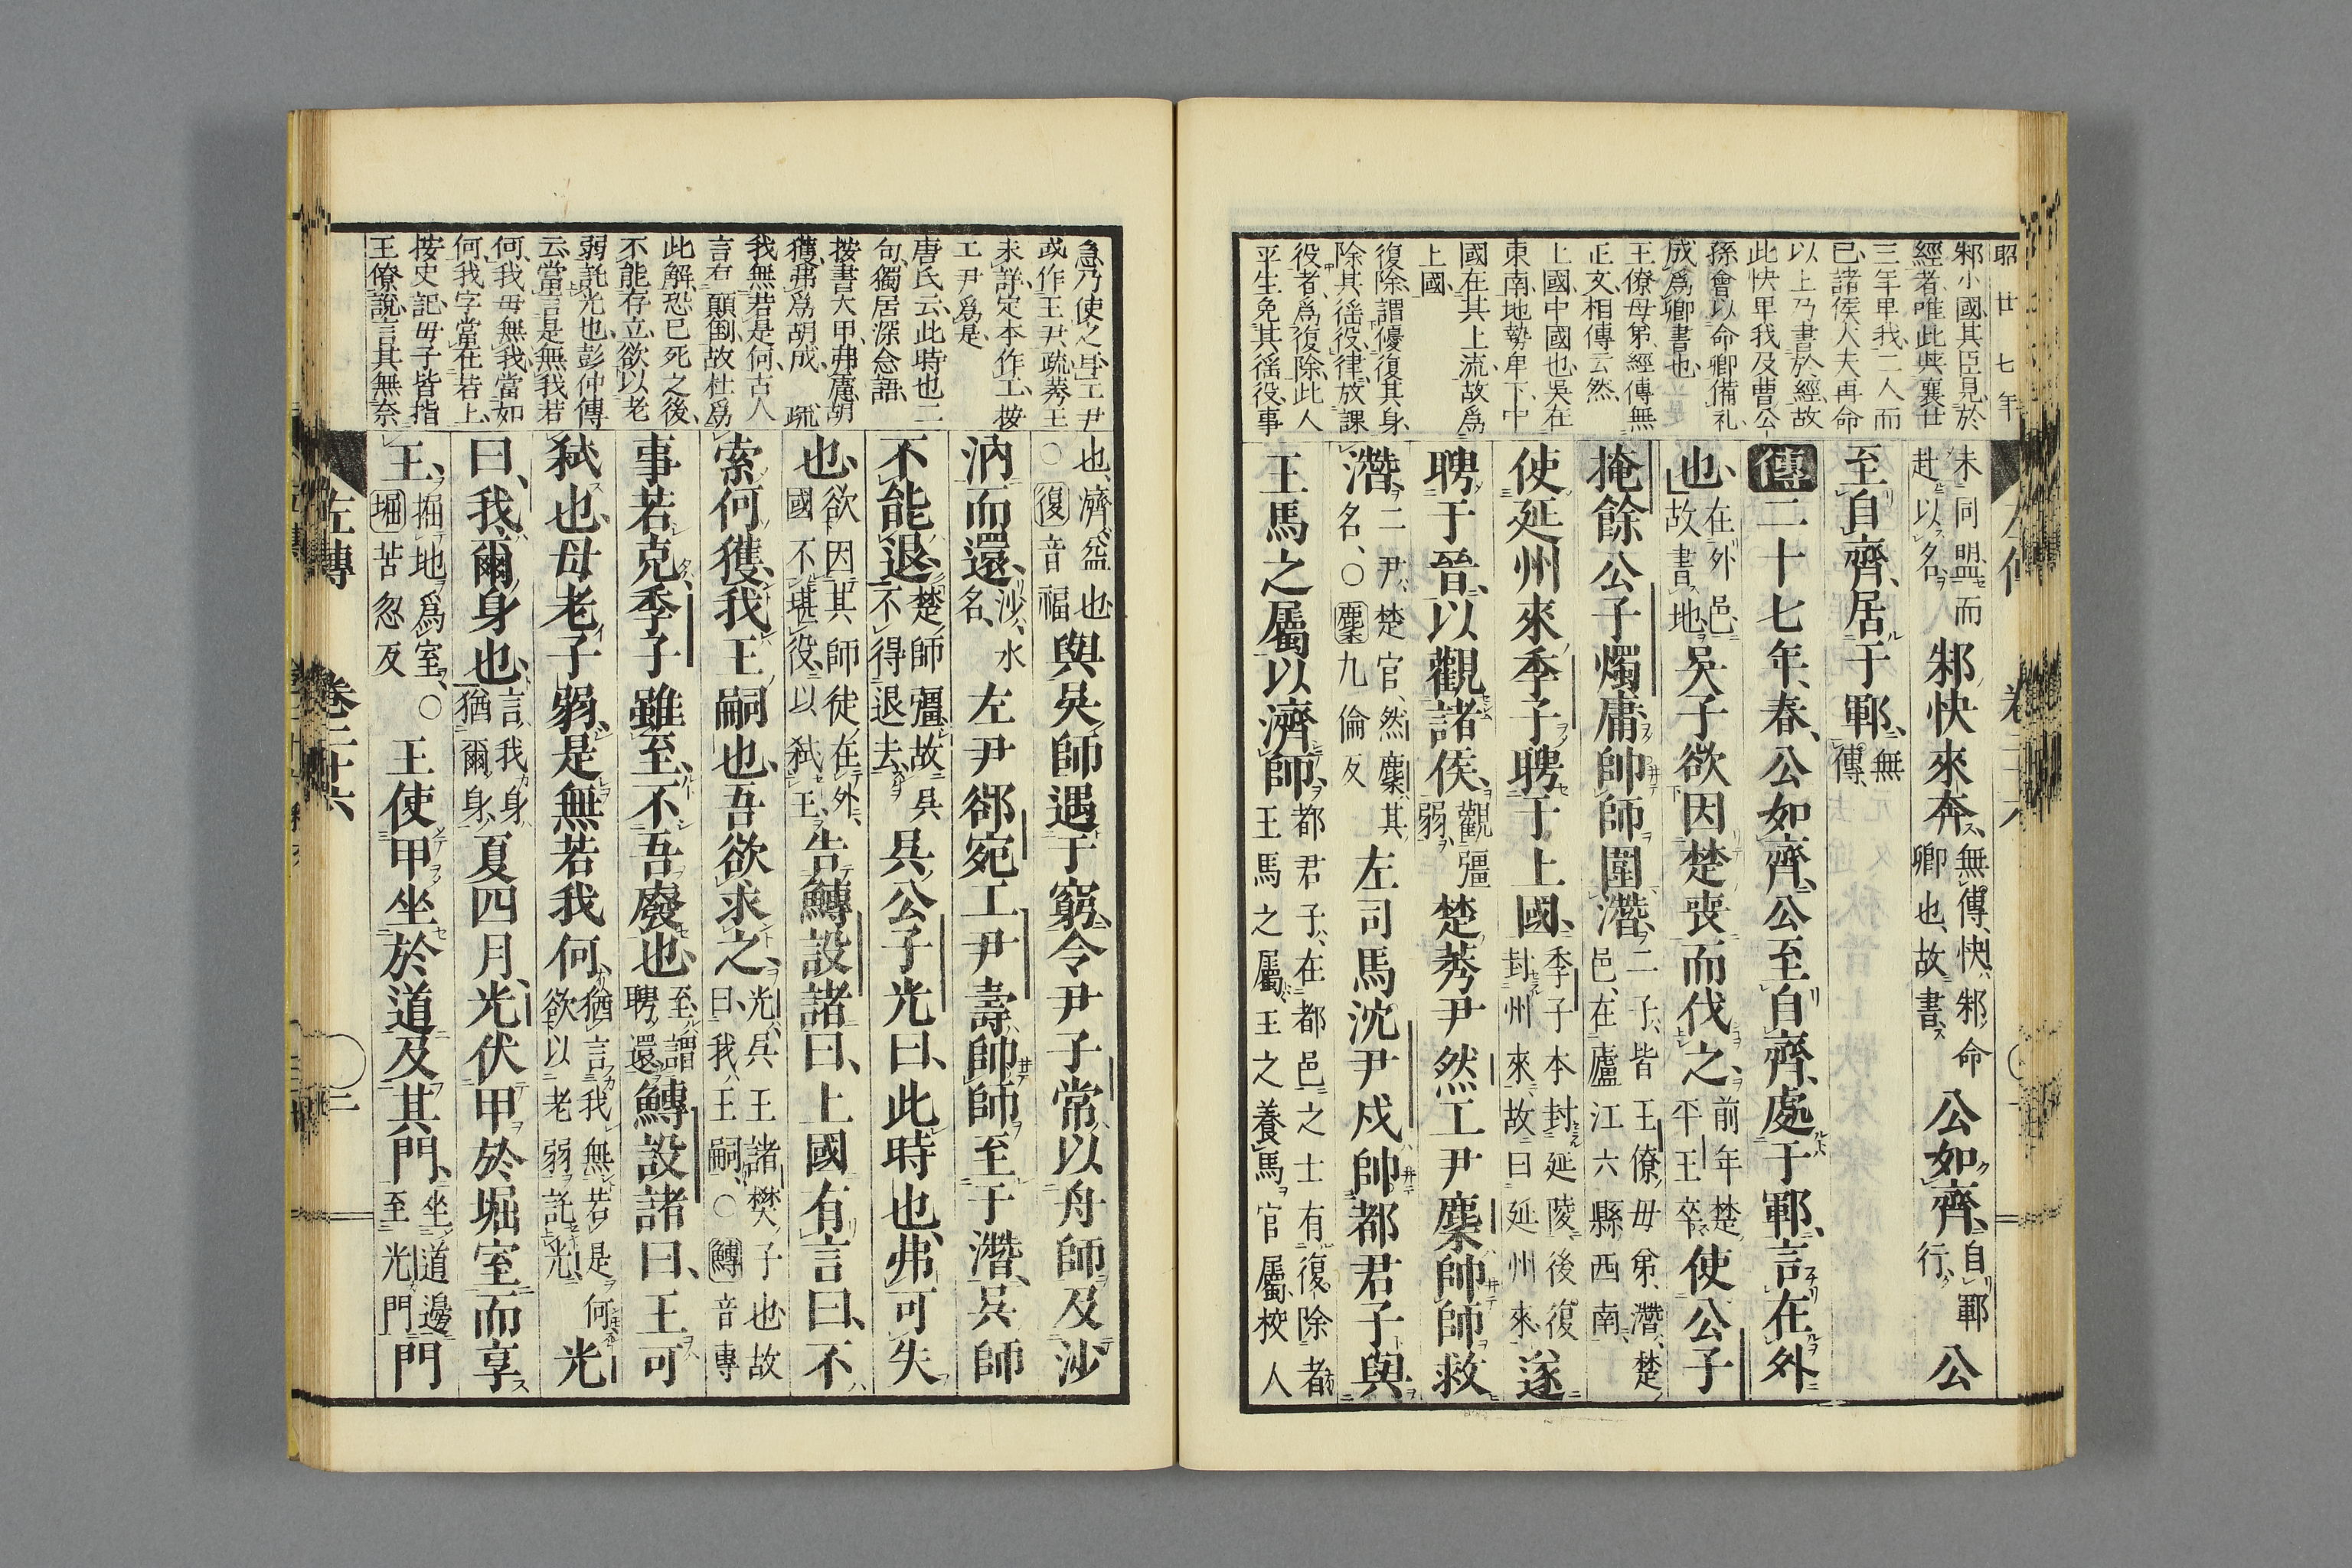 昭 廿七年
邾小國其臣見於
經者唯此與襄廿
三年畀我二人而
已諸侯大夫再命
以上乃書於經故
此快畀我及曹公
孫會以命卿備礼
成爲卿書也
王僚母弟經傳無
正文相傳云然
上國中國也吳在
東南地勢卑下中
國在其上流故爲
上國
復除謂優復其身
除其徭役律放課
役者爲復除此人
平生免其徭役事
未同盟而赴以名邾快來奔無傳快邾命卿也故書公如齊自鄆行公
至自齊居于鄆無傳
傳二十七年春公如齊公至自齊處于鄆言在外
也在外邑故書地吳子欲因楚喪而伐之前年楚平王卒使公子
掩餘公子燭庸帥師圍潛二子皆王僚母弟潛楚邑在廬江六縣西南
使延州來季子聘于上國季子本封延陵後復封州來故曰延州來遂
聘于晉以觀諸侯觀彊弱楚莠尹然工尹麇帥師救
潛二尹楚官然麇其名○麇九倫反左司馬沈尹戍帥都君子與
王馬之屬以濟師都君子在都邑之士有復除者王馬之屬王之養馬官屬校人
急乃使之耳工尹
或作王尹疏莠王
未詳定本作工按
工尹爲是
唐氏云此時也二
句獨居深念語
按書大甲弗慮胡
獲弗爲胡成 疏
我無若是何古人
言有顛倒故杜爲
此解恐已死之後
不能存立欲以老
弱託光也彭仲傳
云當言是無我若
何我毋無我當如
何我字當在若上
按史記毋子皆指
王僚說言其無奈
也濟益也○復音福與吳師遇于窮令尹子常以舟師及沙
汭而還沙水名左尹郤宛工尹壽帥師至于潛吳師
不能退楚師彊故吳不得退去吳公子光曰此時也弗可失
也欲因其師徒在外國不堪役以弒王告鱄設諸曰上國有言曰不
索何獲我王嗣也吾欲求之光吳王諸樊子也故曰我王嗣○鱄音專
事若克季子雖至不吾廢也至謂聘還鱄設諸曰王可
弒也母老子弱是無若我何猶言我無若是何欲以老弱託光光
曰我爾身也言我身猶爾身夏四月光伏甲於堀室而享
王掘地爲室○堀苦忽反王使甲坐於道及其門坐道邊至光門門
左傳 卷二十六 二